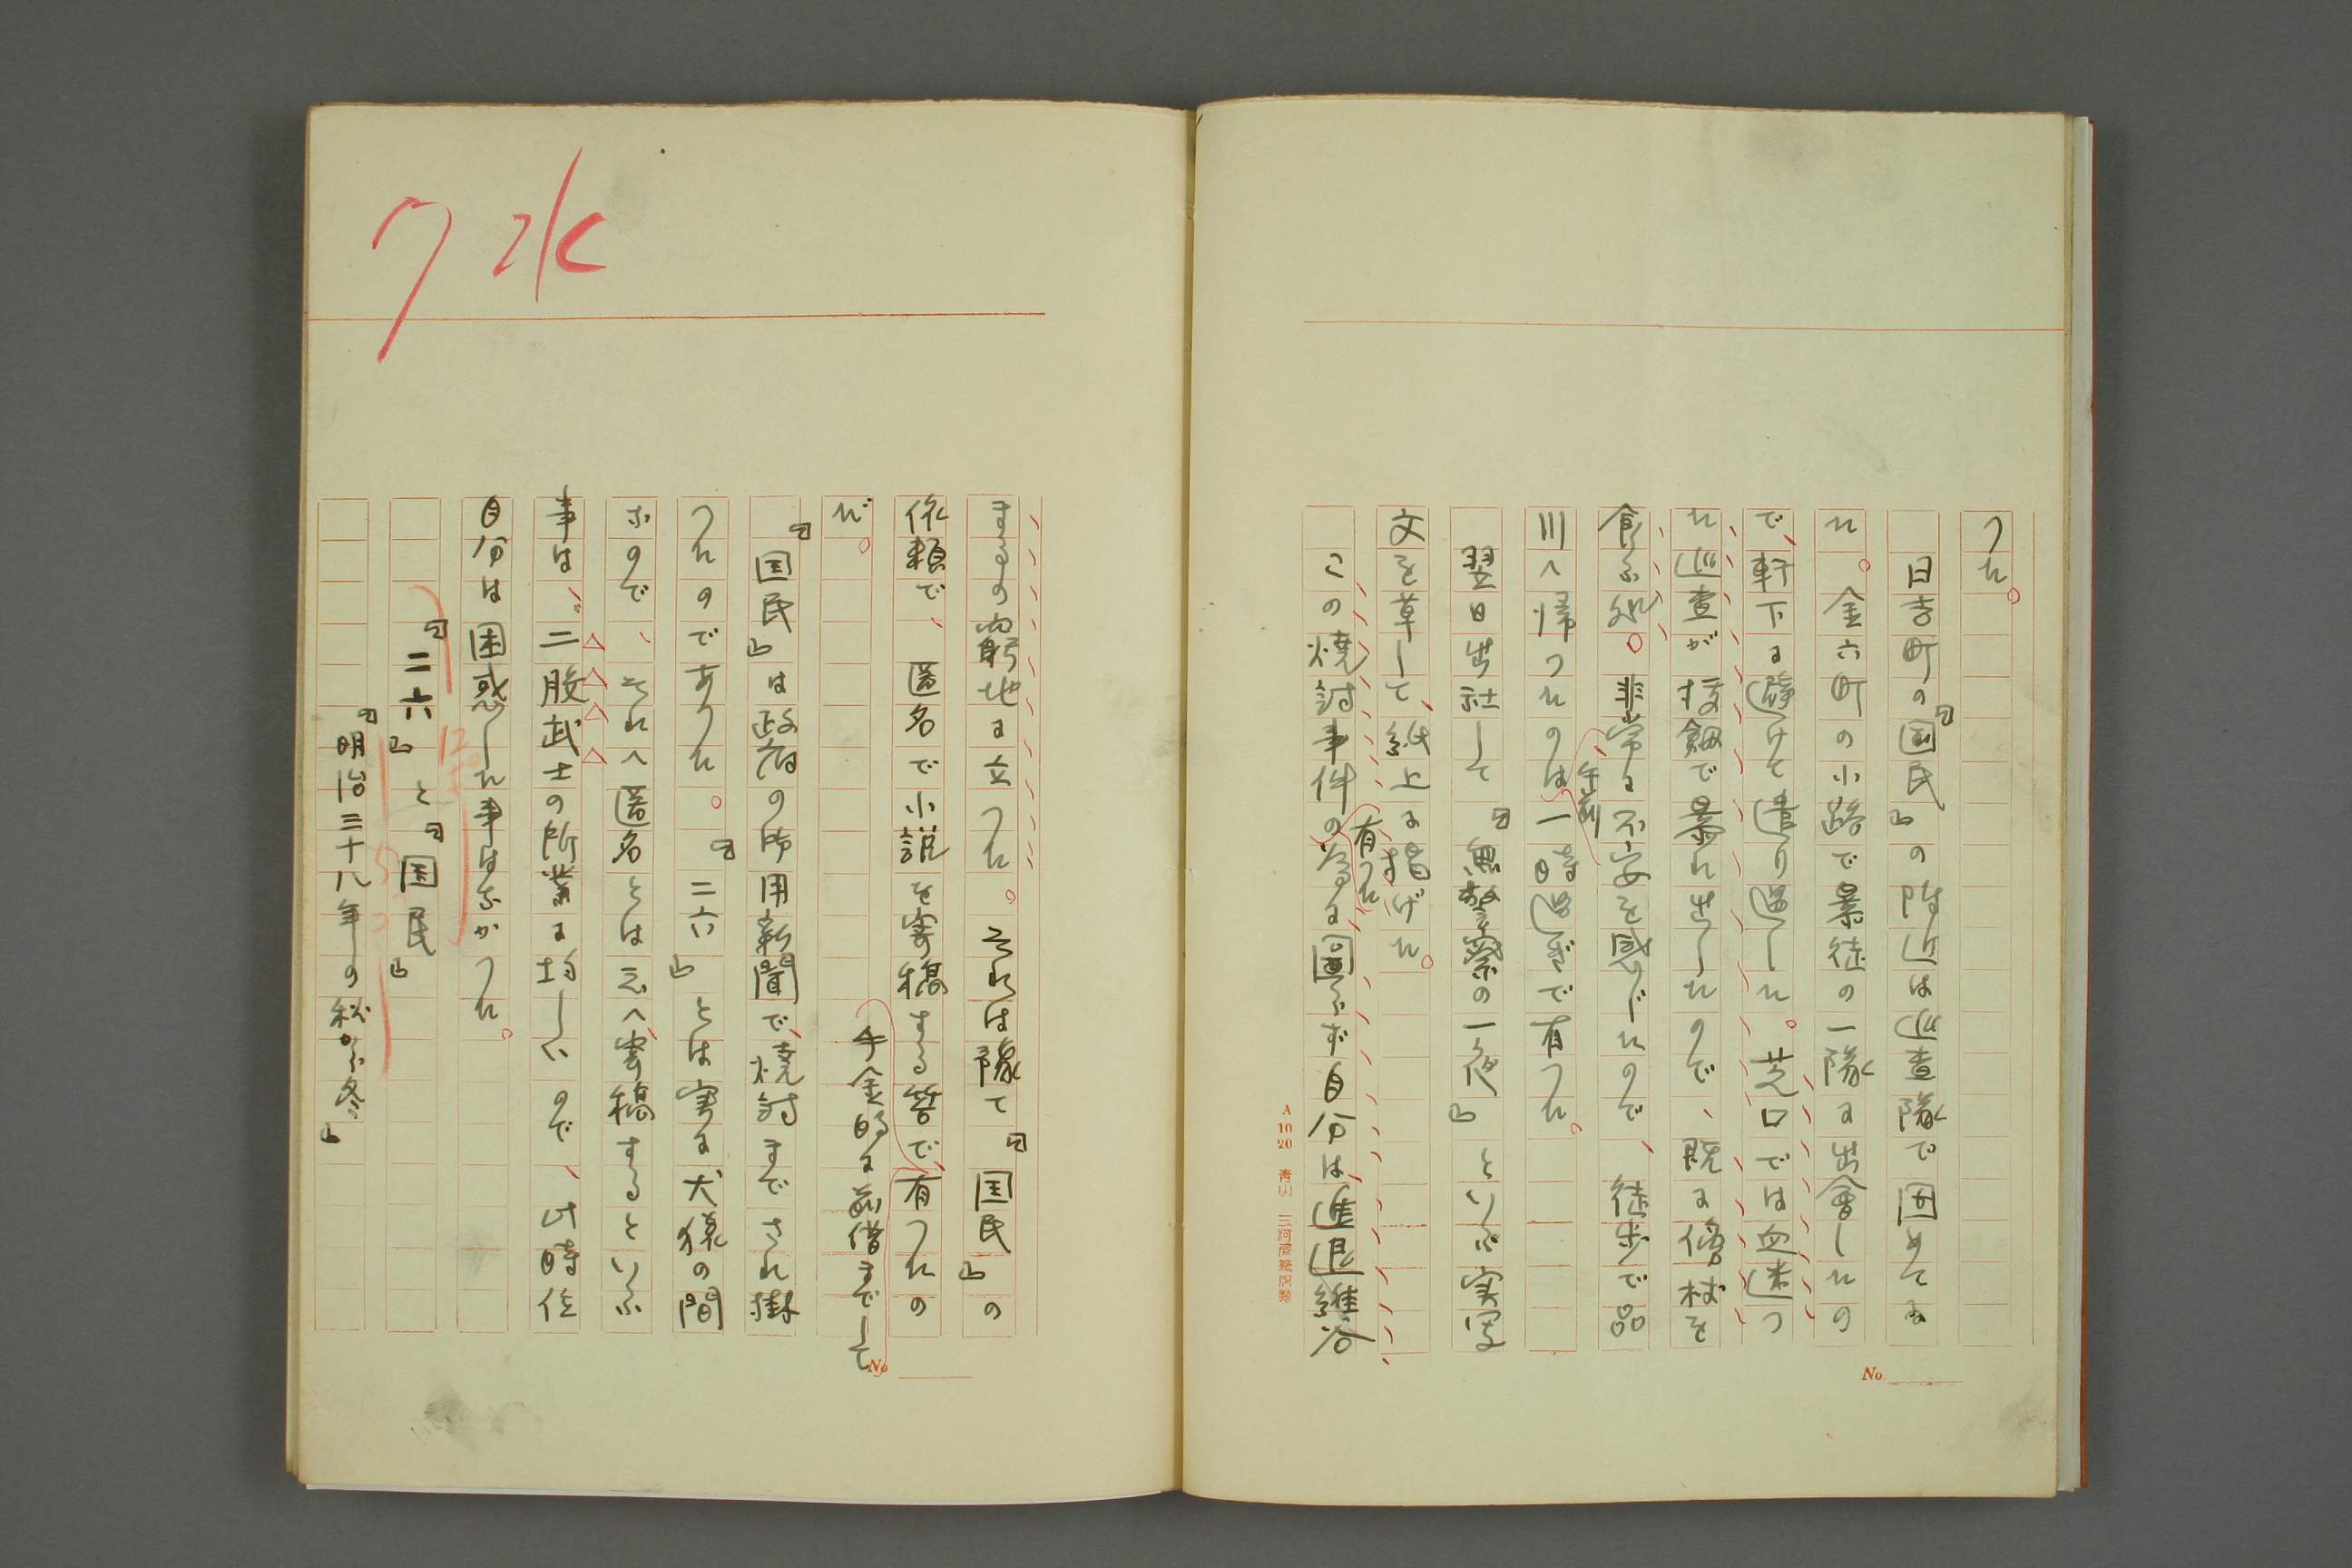 つた。
日吉町の『国民』の附近は巡査隊で固めてゐ
た。金六町の小路で暴徒の一隊に出會したの
で、軒下に避けて遣り過した。芝口では血迷つ
た巡査が抜剣で暴れ出したので、既に傍杖を
食ふ処。非常に不安を感じたので、徒歩で品
川へ帰つたのは午前一時過ぎで有つた。
翌日出社して『無警察の一夜』といふ実写
文を草して、紙上に掲げた。
この焼討事件の有つた為に図らず自分は進退維谷
まるの窮地に立つた。それは豫て『国民』の
依頼で、匿名で小説を寄稿する筈で、手金的に前借までして有つたの
だ。
『国民』は政府の御用新聞で、焼討までされ掛
つたのであつた。『二六』とは実に犬猿の間
なので、それへ匿名とは云へ、寄稿するといふ
事は、二股武士の所業に均しいので、此時位
自分は困惑した事はなかつた。
『二六』と『国民』
『明治三十八年の秋から冬』
ワ水
No.
No.
A 10 20